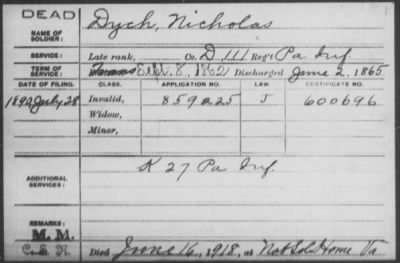 DEAD
NAME OF SOLDIER: Dych, Nicholas
SERVICE: Late rank, Co. D 111 Reg't Pa Inf.
TERM OF SERVICE: Enlisted Sept. 8, 1862 Discharged June 2, 1865
DATE OF FILING. CLASS. APPLICATION NO. LAW. CERTIFICATE NO.
1892 July 28 Invalid, 859225 J 600696
Widow,
Minor,
ADDITIONAL SERVICES: K 27 Pa Inf.
REMARKS:
M. M.
Died June 16, 1918, at Nat Sol Home Va